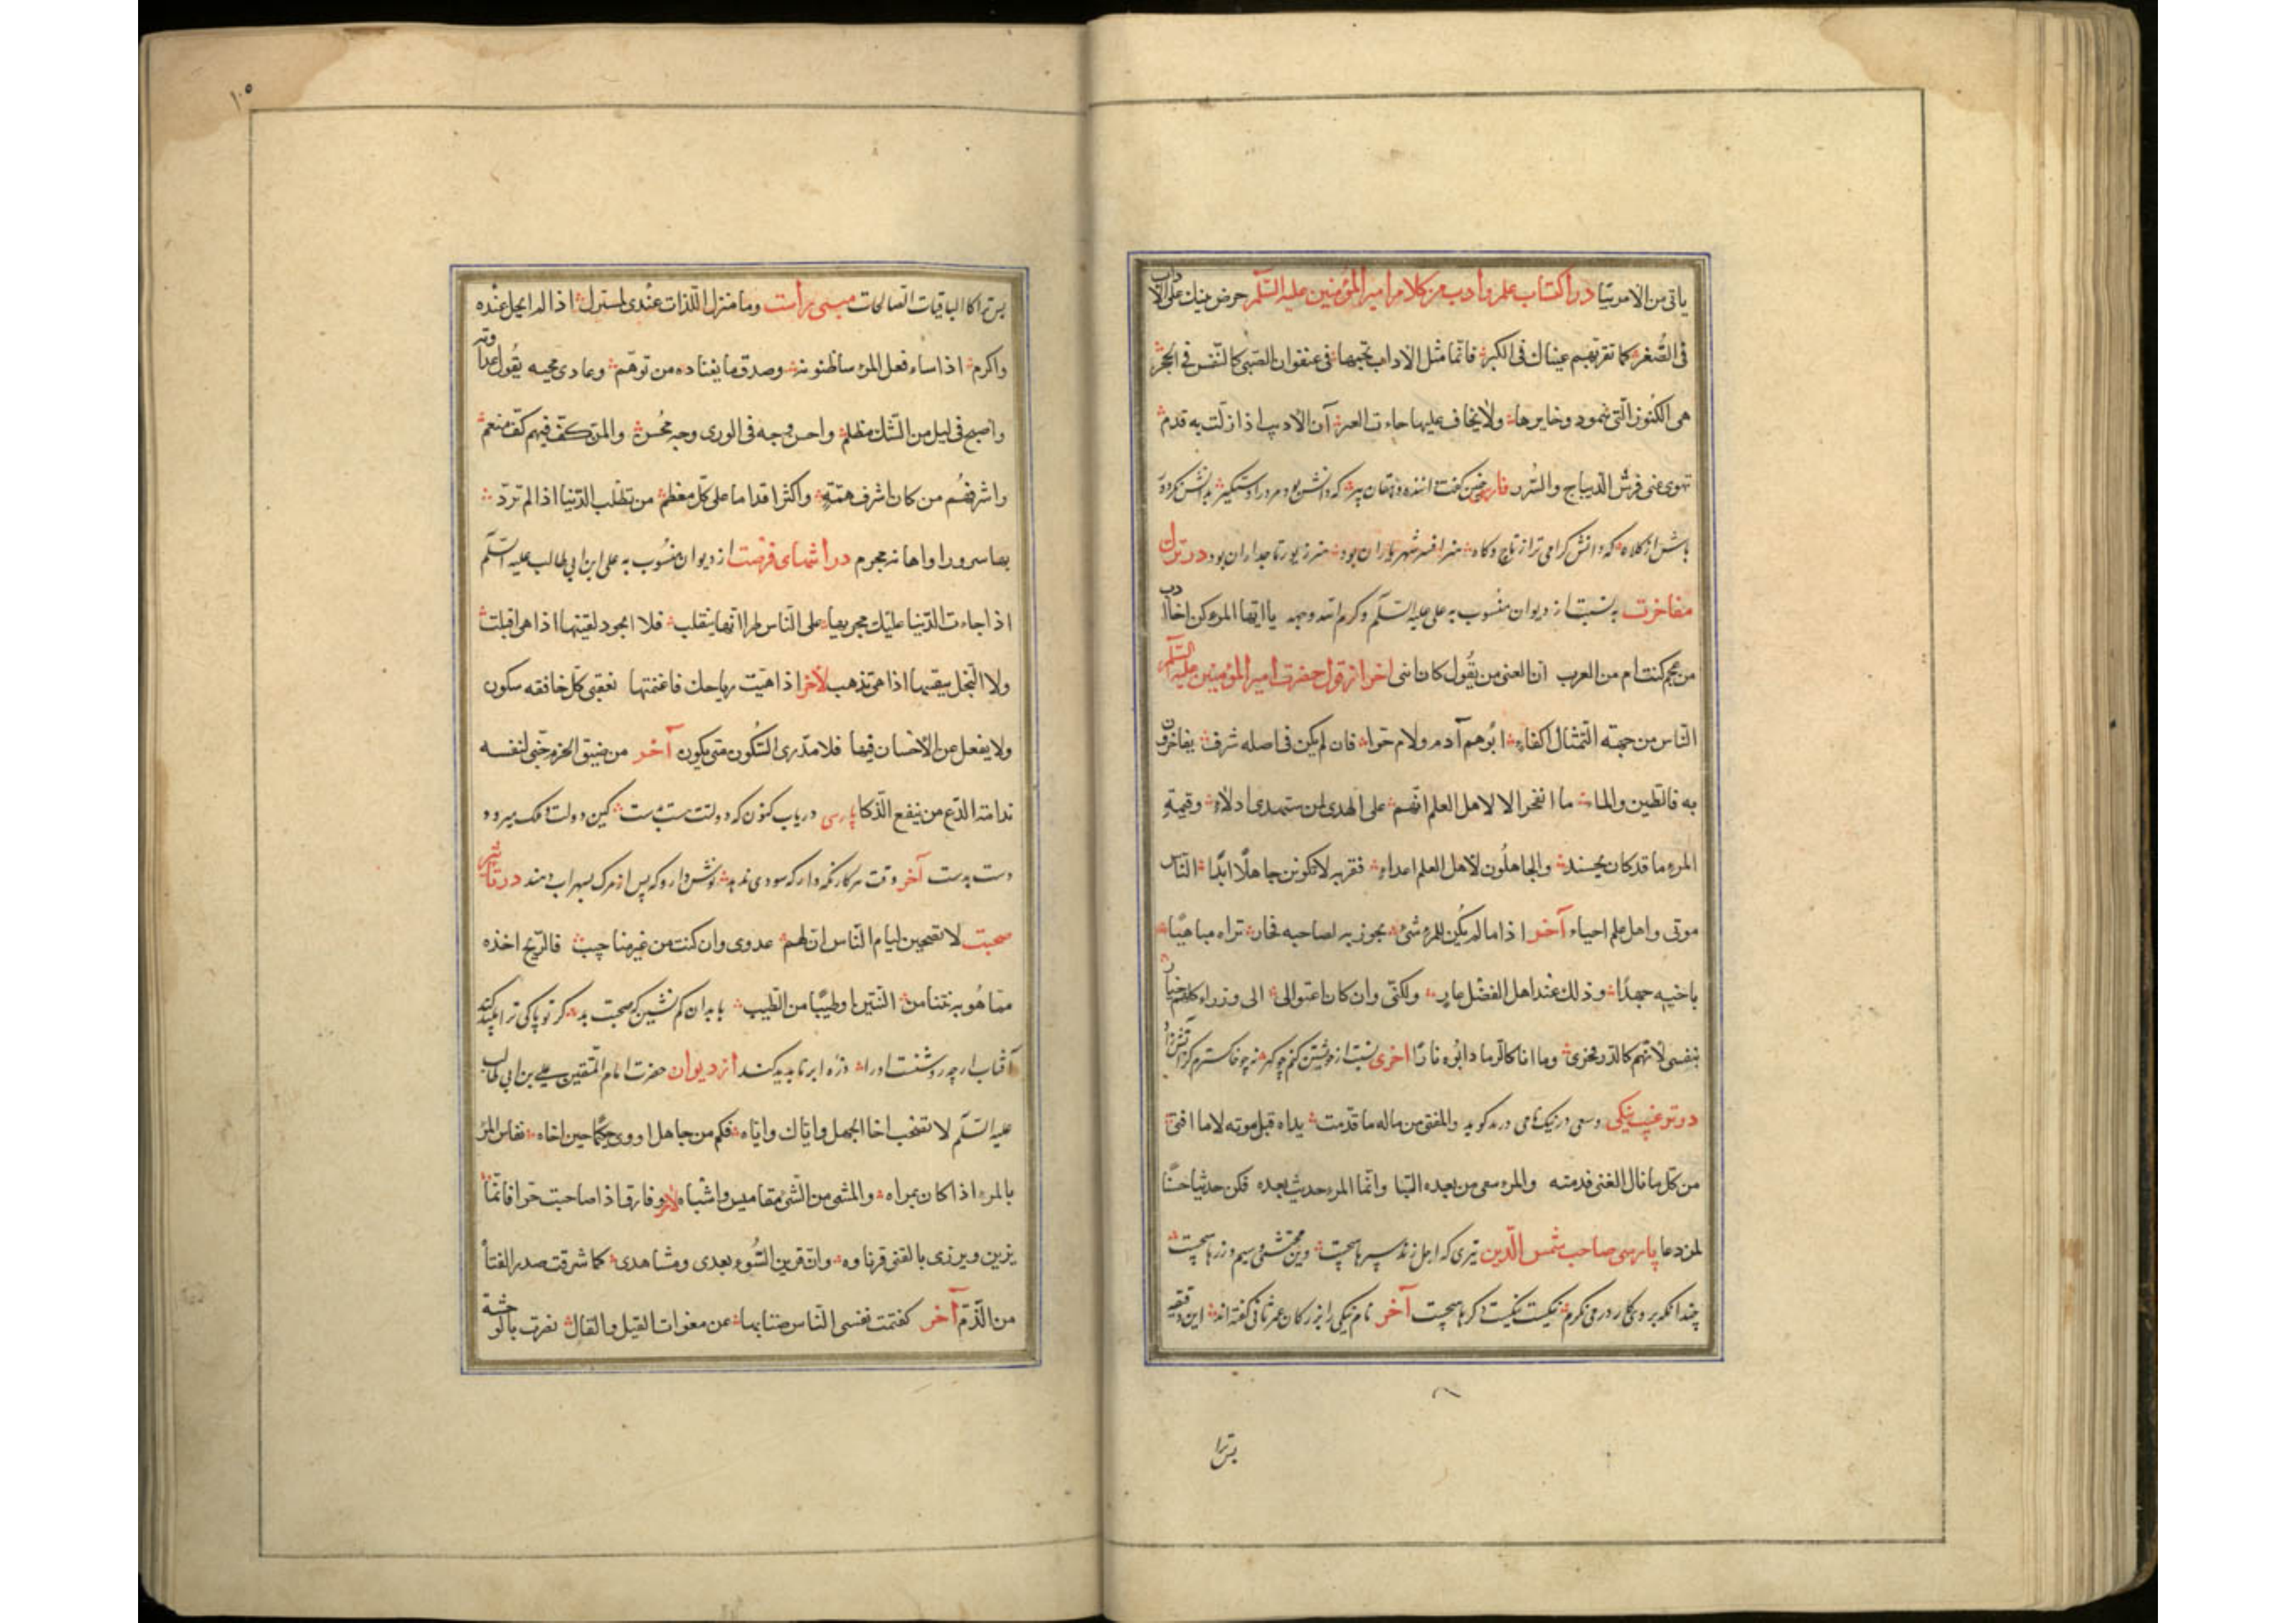 یاتی من الامر بتیا در اکتساب علم و ادب من کلام امیر المؤمنین علیه السلم حرض بنیك علی الآداب
فی الصغر کما تقر بهم عیناك فی الکبر فانما مثل الاداب تجمعها فی عنفوان الصبی کالنقش فی الحجر
هی الکنوز التی ذخایرها ولا یخاف علیها العبر ان الادیب اذا زلت به قدم
تهوی علی فرش الدیباج والسرر فارسی چنین گفت داننده دهقان پیر که دانش بود مرد را دستگیر بدانش
باش از کلاه که دانش گرامی تر از تاج و کاه هنر افسر شهریاران بود هنر زیور تاجداران بود در ترك
مفاخرت به نسبت از دیوان منسوب به علی علیه السلم و کرم الله وجهه یا ایها المرء کن اخا ادب
من عجم کنت ام من العرب ان الفتی من یقول کان ابی اخر از قول حضرت امیر المؤمنین علیه السلم
الناس من جهته التمثال اکفاء ابوهم آدم والام حوا فان لم یکن فی اصله شرف یفاخرون
به فالطین والماء ما الفخر الا لاهل العلم انهم علی الهدی لمن ستهدی ادلاء وقیمة
المرء ما قد کان یحسنه والجاهلون لاهل العلم اعداء فقر به لا تکونن جاهلا ابدا الناس
موتی واهل علم احیاء آخر اذا ما لم یکن للمرء شئ یجوز به لصاحبه فخار تراه مباهیا
باخیه جهدا وذلك عند اهل الفضل عار ولکنی وان کان اعتوالی الی وزراء کلهم خیار
بنفسی لانهم کالدر فخری وما انا کالرماد ابوه نارا اخری نسبت از خویشتن کنم چو گهر نه چو خاکسترم کز آتش زاد
در ترغیب نیکی و سعی در نیک نامی در مد گوید والمفتی من ماله ما قدمت یداه قبل موته لا ما اقتنی
من کل ما نال الغنی قدمته والمرء سعی من بعده الثنا وانما المرء حدیث بعده فکن حدیثا حسنا
لمن دعا پارسی صاحب شمس الدین تیری که اجل زند سپرها هیچست وین محتشمی و سیم و زرها هیچست
چندانکه بروی کار در می نگرم نیکست که نیکست دگرها هیچست آخر نام نیکی را بزرگان عمر ثانی گفته اند این دقیقه
بس ترا
۱۰۵
بس ترا کالباقیات الصالحات مبنی براست وما منزل اللذات عندی بمنزل اذا لم ابجل عنده
واکرم اذا ساء فعل المرء ساء ظنونه وصدق ما یعتاده من توهم وعادی محبیه بقول عداوته
واصبح فی لیل من الشك مظلم واحسن وجه فی الوری وجه محسن والمن کف فیهم کف منعم
واشرفهم من کان اشرف همة واکثر اقداما علی کل معظم من تطلب الدنیا اذا لم ترد
بها سرور او اهانه مجرم در فرصت از دیوان منسوب به علی ابن ابی طالب علیه السلم
اذا جاءت الدنیا علیك فجد بها علی الناس طرا انها ینقلب فلا الجود یفنیها اذا هی اقبلت
ولا البخل یبقیها اذا هی تذهب لآخر اذا هبت ریاحك فاغتنمها فعقبی کل خافقه سکون
ولا یغفل عن الاحسان فیها فلا تدری السکون متی یکون آخر من ضیق الحزم جنی لنفسه
ندامة الذع من نیفع الذکا پارسی دریاب کنون که دولتت هست بدست کین دولت و ملک میرود
دست بدست آخر وقت هر کار نگه دار که سودی ندهد نوش دارو که پس از مرگ بسهراب دهند در تاثیر
صحبت لا تصحبن لیام الناس ان لهم عدوی وان کنت من غیر مناجب فالریح اخذه
مما هو به نتنا من النتین او طیبا من الطیب با بدان کم نشین که صحبت بد گر تو پاکی ترا پلید کند
آفتاب ارچه روشنست او را ذره ابر ناپدید کند از دیوان حضرت امام المتقین علی بن ابی طالب
علیه السلم لا تصحب اخا الجهل وایاك وایاه فکم من جاهل اردی حکیما حین اخاه یقاس المرء
بالمرء اذا کان بمراه وللشئ من الشئ مقامیس واشباه لآخر وفارق اذا صاحبت حرا فانما
یزین ویزری بالفتی قرناوه وان قرین السوء یعدی ومشاهدی کما شرقت صدر الفتا
من الدم آخر کفتمت نفسی الناس مننابها عن مغوات القیل والقال نفرت بالوحشة